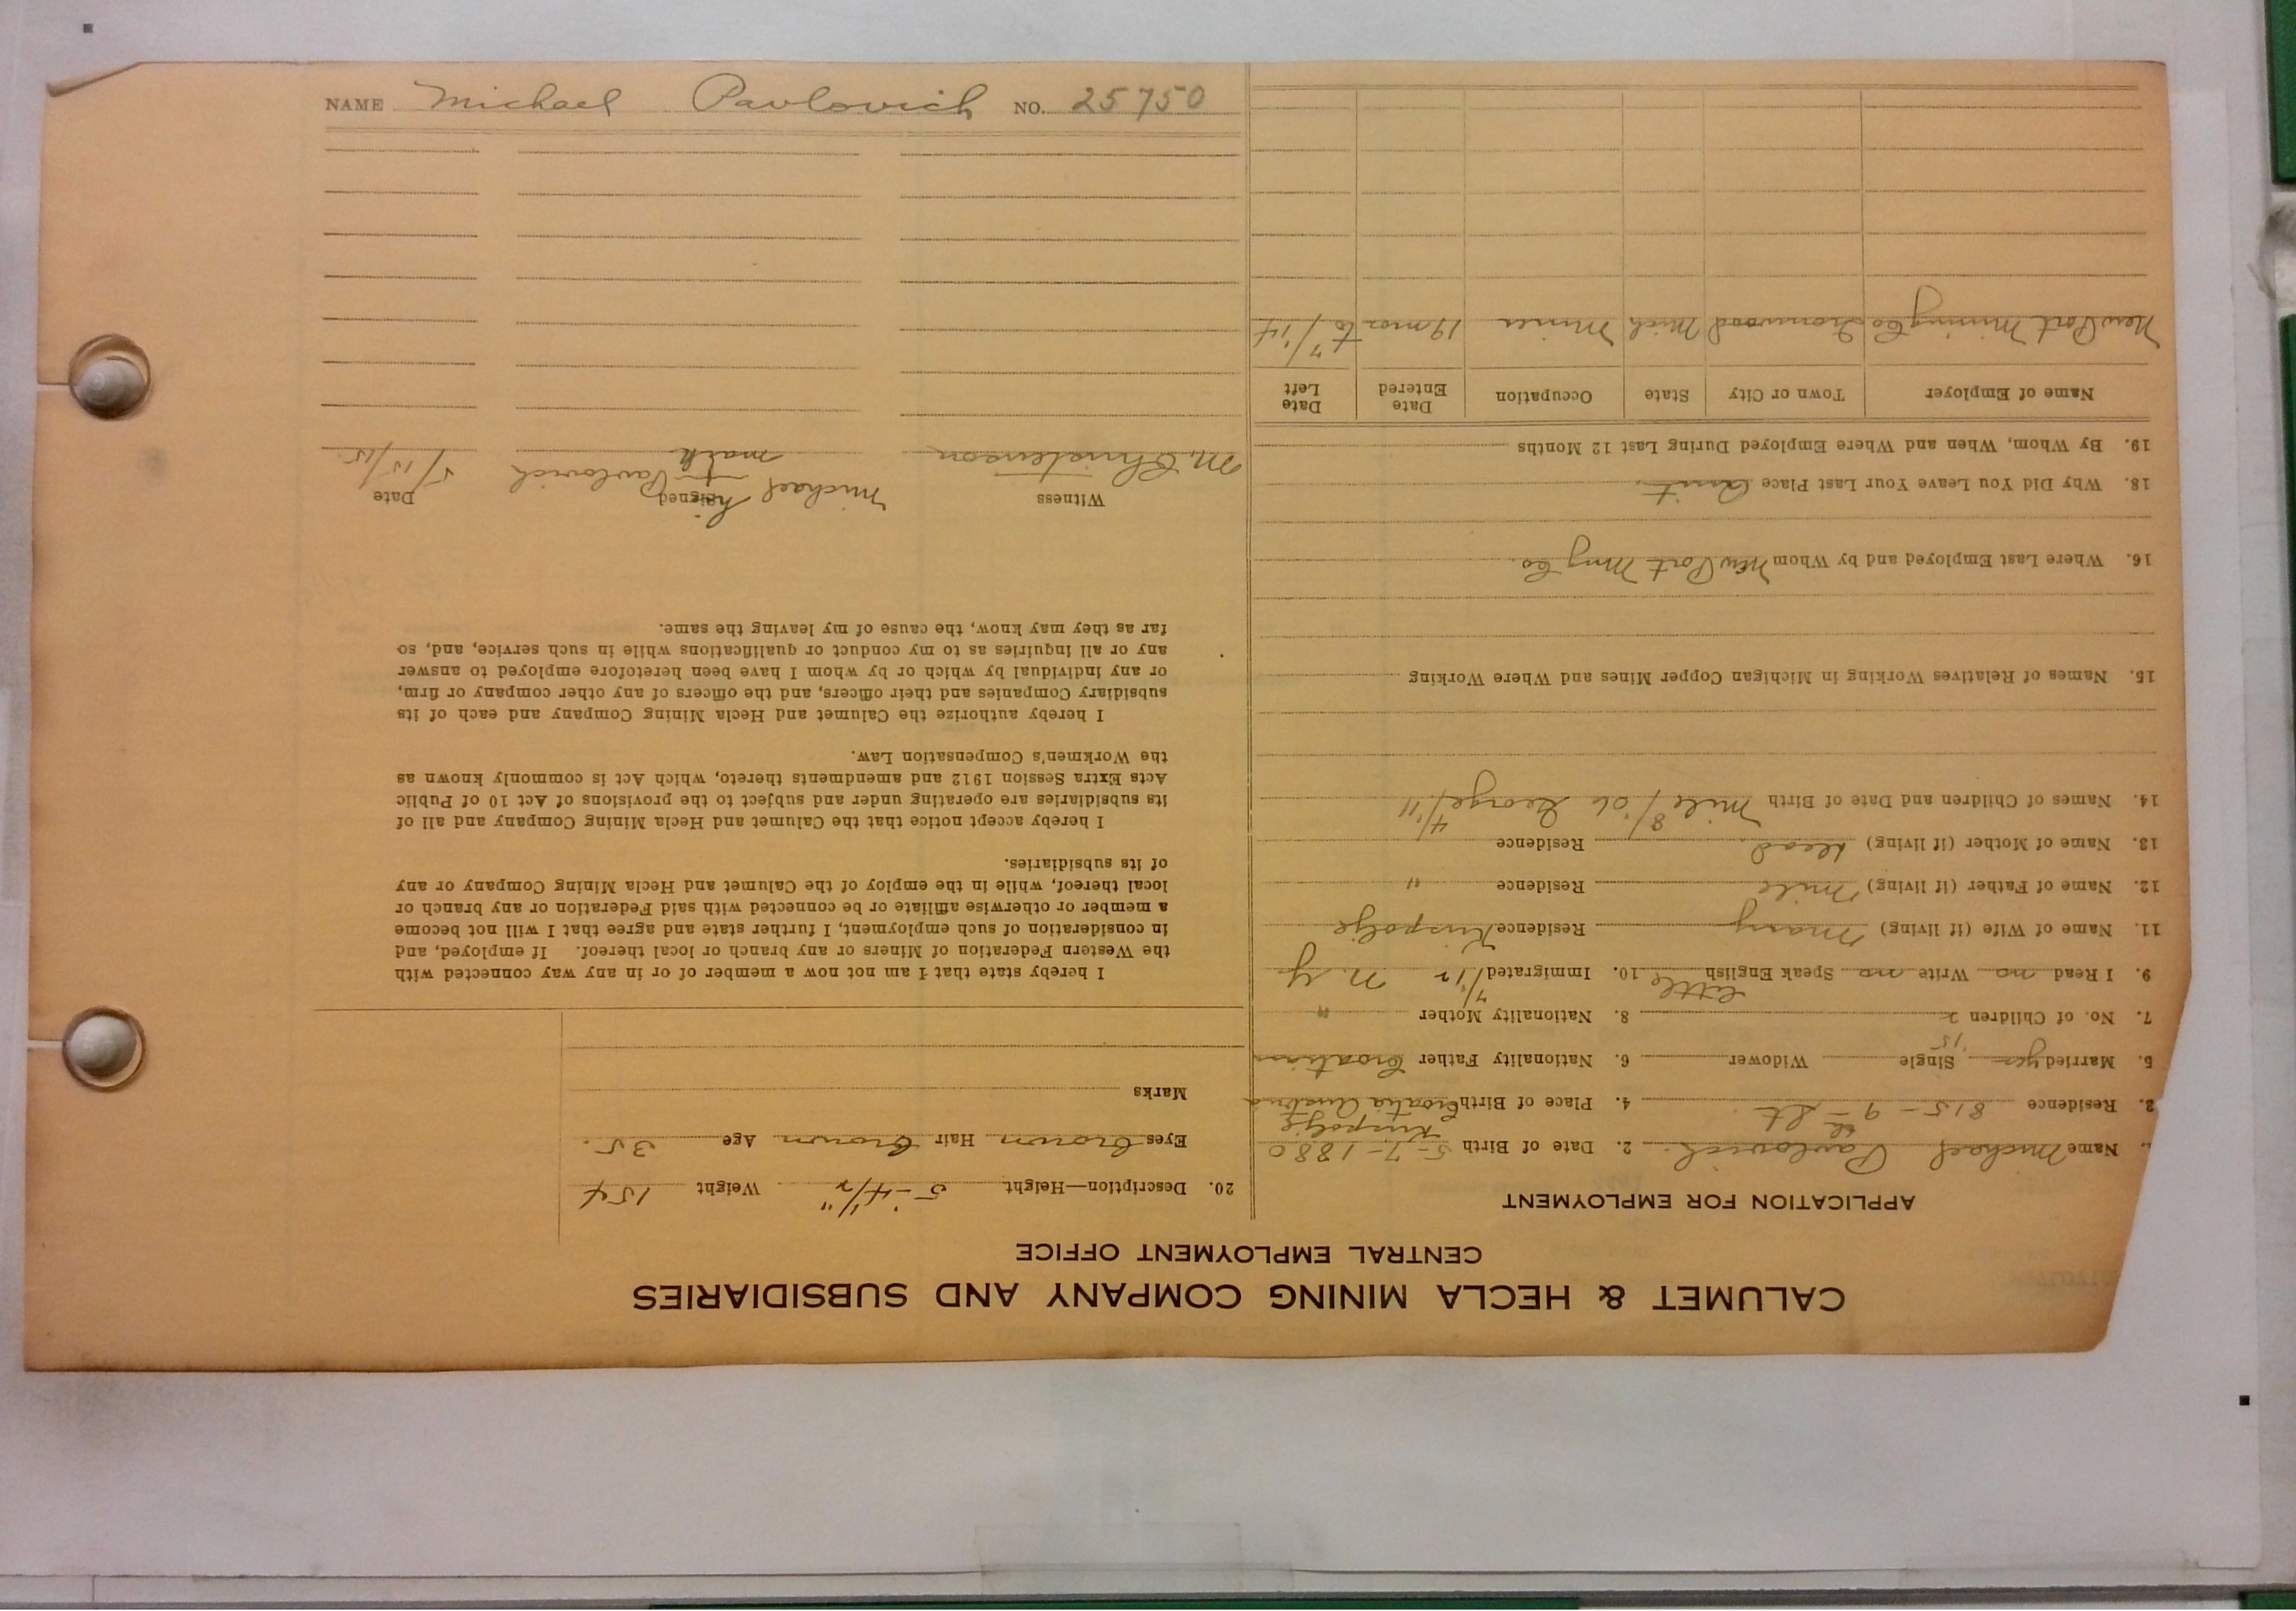 NAME Michael Pavlovich NO. 25750
CALUMET & HECLA MINING COMPANY AND SUBSIDIARIES
CENTRAL EMPLOYMENT OFFICE
APPLICATION FOR EMPLOYMENT
Name Michael Pavlovich. 2. Date of Birth 5-7-1880
3. Residence 815 - 9th St 4. Place of Birth Croatia Austria
5. Married yes 15 Single Widower 6. Nationality Father Croatian
7. No. of Children 2 8. Nationality Mother "
9. I Read no Write no Speak English little 10. Immigrated 7/'12 N.Y.
11. Name of Wife (if living) Mary Residence
12. Name of Father (if living) Mile Residence "
13. Name of Mother (if living) Dead. Residence
14. Names of Children and Date of Birth Mile 8/'06 George 4/'11
15. Names of Relatives Working in Michigan Copper Mines and Where Working
16. Where Last Employed and by Whom New Port Mng Co.
18. Why Did You Leave Your Last Place
19. By Whom, When and Where Employed During Last 12 Months
Name of Employer Town or City State Occupation Date Entered Date Left
New Port Mining Co. Ironwood Mich Miner 19 mos to 7/'14
20. Description—Height 5'-4 1/2" Weight 154
Eyes Brown Hair Brown Age 35.
Marks
I hereby state that I am not now a member of or in any way connected with
the Western Federation of Miners or any branch or local thereof. If employed, and
in consideration of such employment, I further state and agree that I will not become
a member or otherwise affiliate or be connected with said Federation or any branch or
local thereof, while in the employ of the Calumet and Hecla Mining Company or any
of its subsidiaries.
I hereby accept notice that the Calumet and Hecla Mining Company and all of
its subsidiaries are operating under and subject to the provisions of Act 10 of Public
Acts Extra Session 1912 and amendments thereto, which Act is commonly known as
the Workmen's Compensation Law.
I hereby authorize the Calumet and Hecla Mining Company and each of its
subsidiary Companies and their officers, and the officers of any other company or firm,
or any individual by which or by whom I have been heretofore employed to answer
any or all inquiries as to my conduct or qualifications while in such service, and, so
far as they may know, the cause of my leaving the same.
Witness Signed Date
M. Christenson Michael his + mark Pavlovich 5/15/15